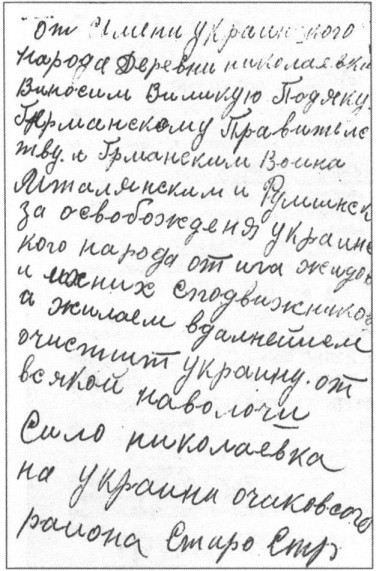 от имени украинского
народа Деревни николаевки
Виносим Виликую Подяку.
Германскому Правителс
тву. и Грманским Воина
Италянским и Румынск
за освобожденя украинс
кого народа от ига жидов
и их них сподвижников
а жилаем вдалнейшем
очистит украину. от
всякой наволочи
Сило николаевка
на украини очаковсого
раиона Старо Стр